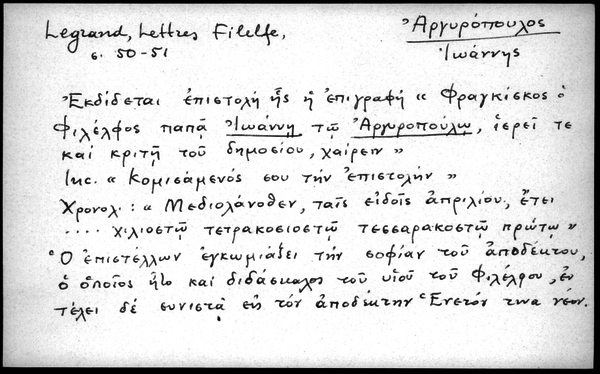 Legrand, Lettres Filelfe,
σ. 50-51
Ἀργυρόπουλος
Ἰωάννης
Ἐκδίδεται ἐπιστολή ἧς ἡ ἐπιγραφή « Φραγκίσκος ὁ
Φιλέλφος παπᾷ Ἰωάννῃ τῷ Ἀργυροπούλῳ, ἱερεῖ τε
καί κριτῇ τοῦ δημοσίου, χαίρειν »
Inc. « Κομισάμενός σου τήν ἐπιστολήν »
Χρονολ: « Μεδιολάνοθεν, ταῖς εἰδοῖς ἀπριλίου, ἔτει
.... χιλιοστῷ τετρακοσιοστῷ τεσσαρακοστῷ πρώτῳ »
Ὁ ἐπιστέλλων ἐγκωμιάζει τήν σοφίαν τοῦ ἀποδέκτου,
ὁ ὁποῖος ἦτο καί διδάσκαλος τοῦ υἱοῦ τοῦ Φιλέλφου, ἐν
τέλει δέ συνιστᾷ εἰς τόν ἀποδέκτην Ἑνετόν τινα νέον.